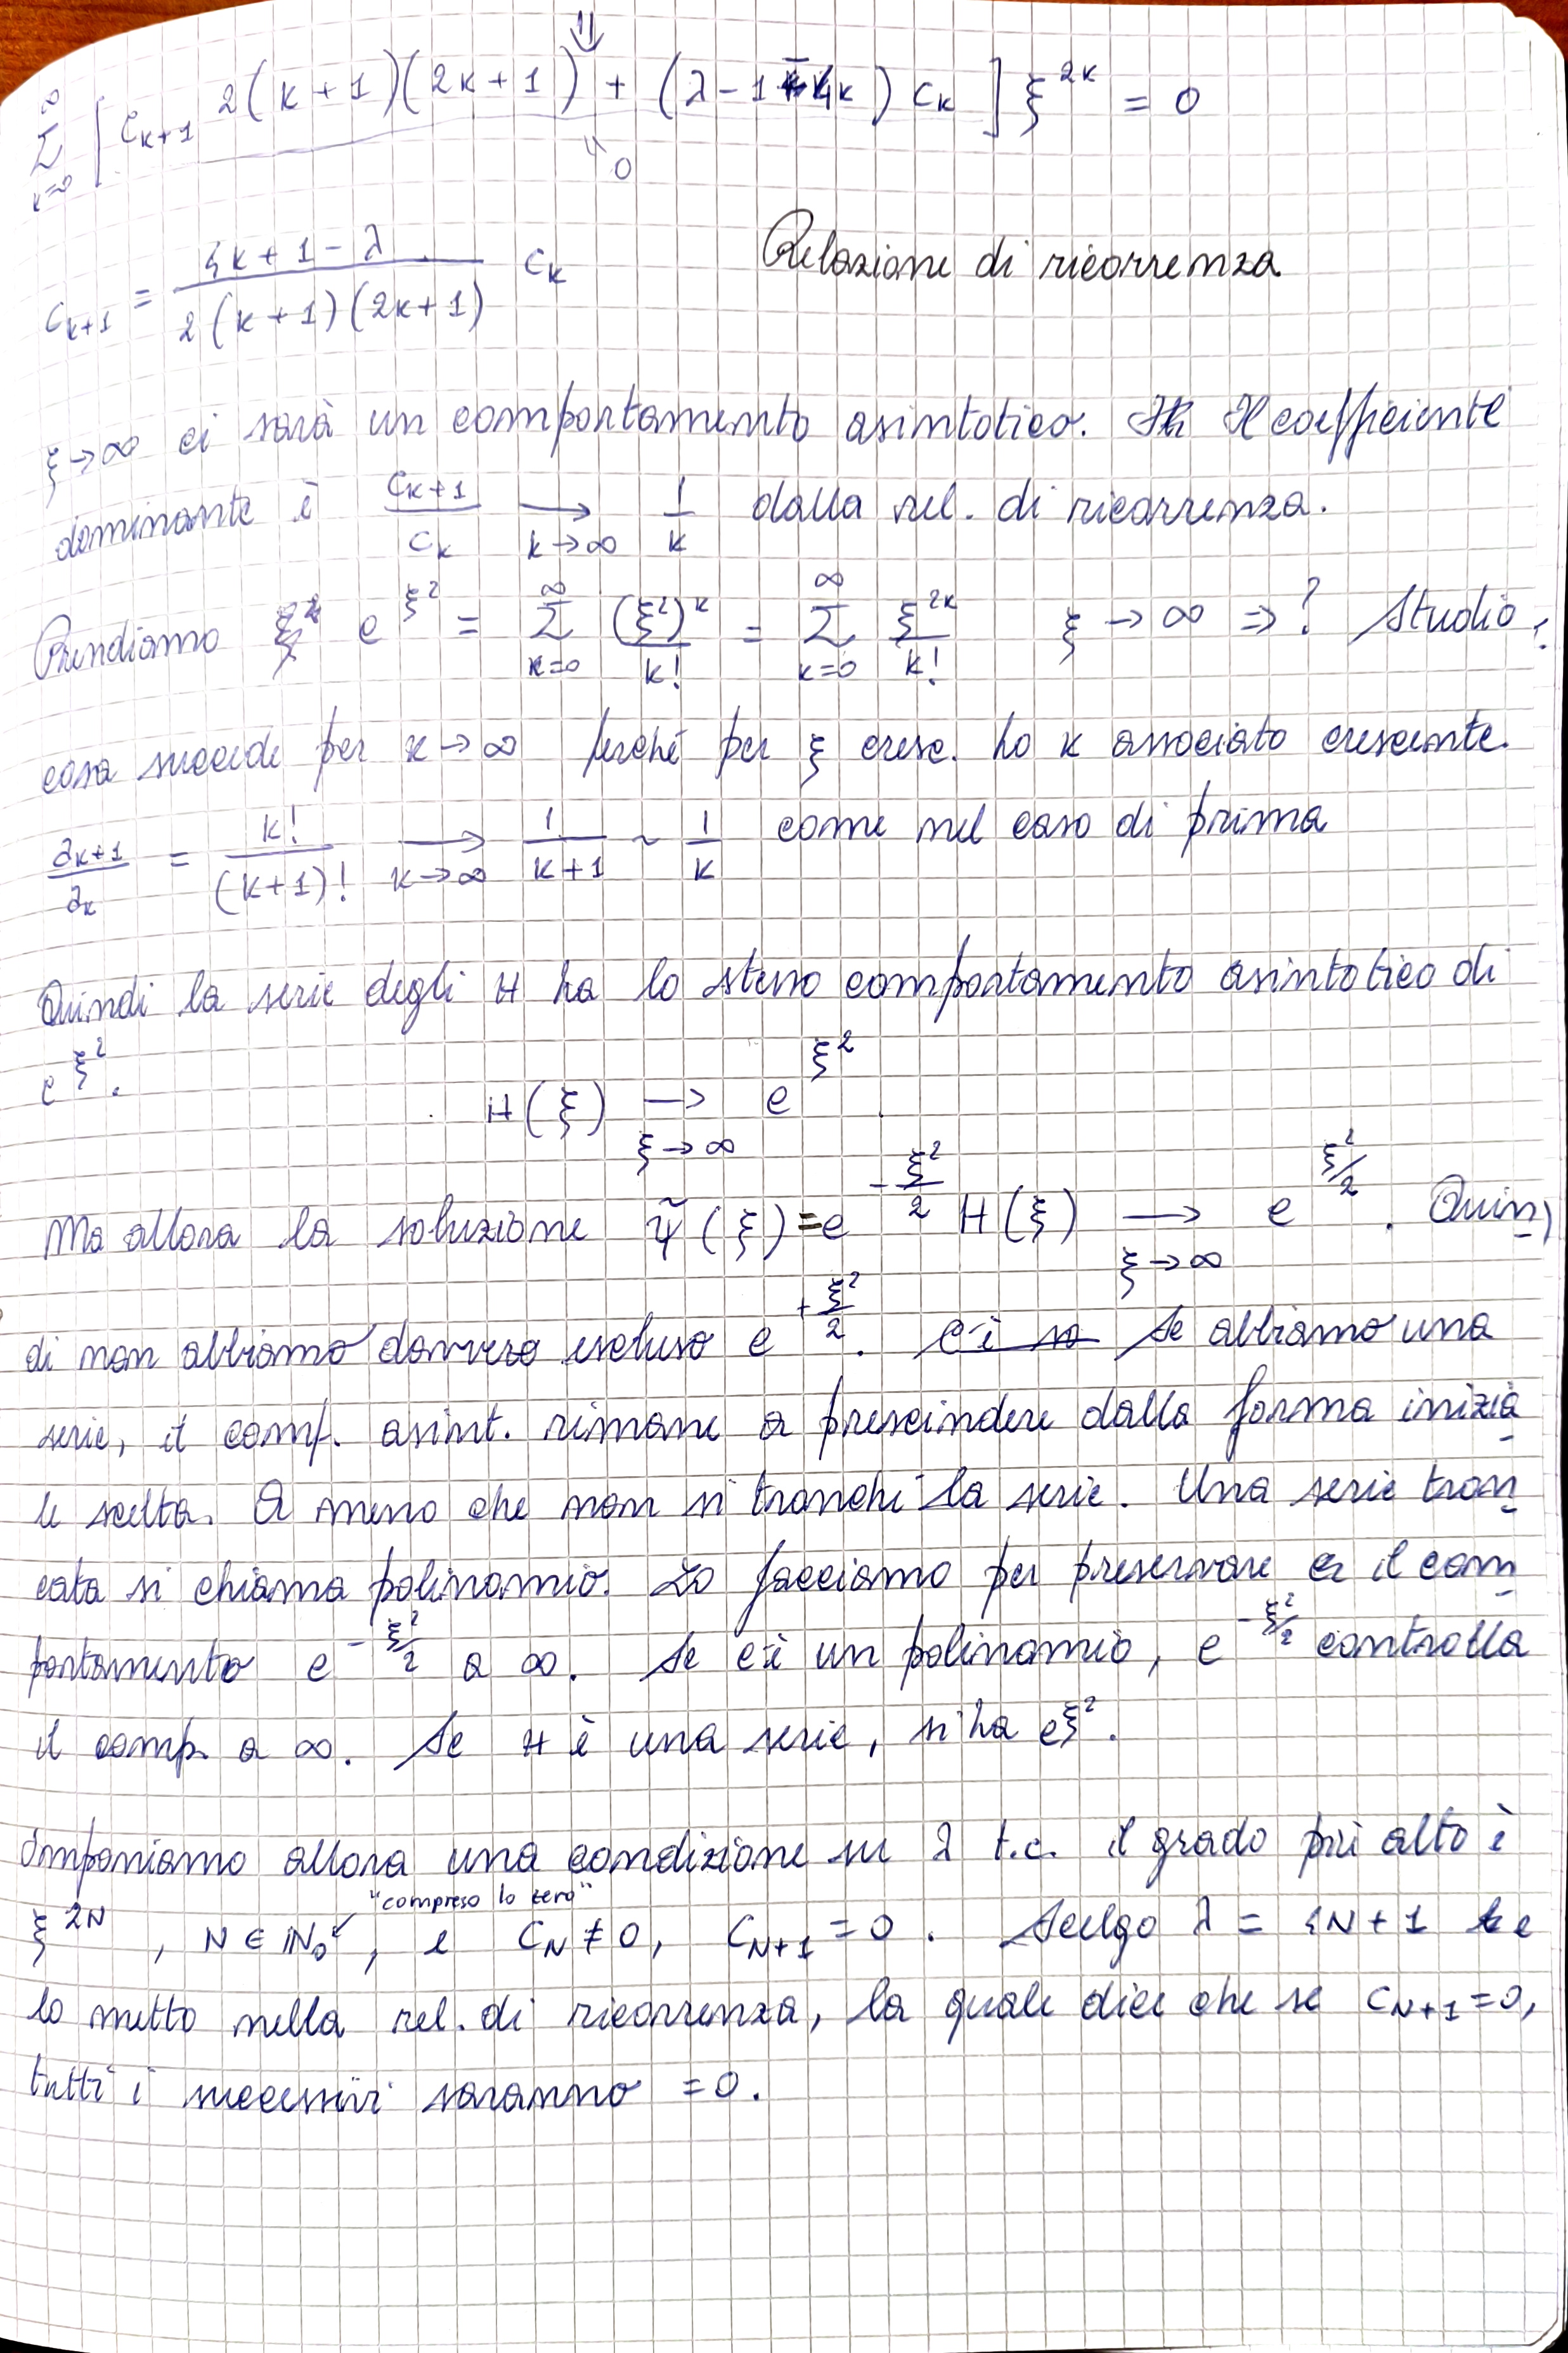 ⇓
∞ Σ k=0 [ c_{k+1} 2(k+1)(2k+1) + (λ-1-4k) c_k ] ξ^{2k} = 0
"0
c_{k+1} = \frac{4k+1-λ}{2(k+1)(2k+1)} c_k Relazione di ricorrenza
ξ→∞ ci sarà un comportamento asintotico. Il coefficiente
dominante è \frac{c_{k+1}}{c_k} \xrightarrow[k→∞]{} \frac{1}{k} dalla rel. di ricorrenza.
Prendiamo e^{ξ^2} = \sum_{k=0}^{∞} \frac{(ξ^2)^k}{k!} = \sum_{k=0}^{∞} \frac{ξ^{2k}}{k!} ξ→∞ ⇒? Studio
cosa succede per k→∞ perché per ξ cresc. ho k associato crescente.
\frac{a_{k+1}}{a_k} = \frac{k!}{(k+1)!} \xrightarrow[k→∞]{} \frac{1}{k+1} ~ \frac{1}{k} come nel caso di prima
Quindi la serie degli H ha lo stesso comportamento asintotico di
e^{ξ^2}.
H(ξ) \xrightarrow[ξ→∞]{} e^{ξ^2}
Ma allora la soluzione \tilde{ψ}(ξ) = e^{-\frac{ξ^2}{2}} H(ξ) \xrightarrow[ξ→∞]{} e^{ξ^2/2}. Quin
di non abbiamo davvero escluso e^{+\frac{ξ^2}{2}}. Se abbiamo una
serie, il comp. asint. rimane a prescindere dalla forma inizia
le scelta. A meno che non si tronchi la serie. Una serie tron
cata si chiama polinomio. Lo facciamo per preservare il com
portamento e^{-ξ^2/2} a ∞. Se c'è un polinomio, e^{-ξ^2/2} controlla
il comp. a ∞. Se H è una serie, si ha e^{ξ^2}.
Imponiamo allora una condizione su λ t.c. il grado più alto è
"compreso lo zero"
ξ^{2N}, N ∈ ℕ_0, e C_N ≠ 0, C_{N+1} = 0. Scelgo λ = 4N+1 e
lo metto nella rel. di ricorrenza, la quale dice che se C_{N+1} = 0,
tutti i successivi saranno = 0.